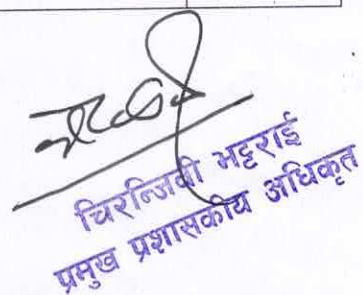 चिरन्जिवी भट्टराई
प्रमुख प्रशासकीय अधिकृत